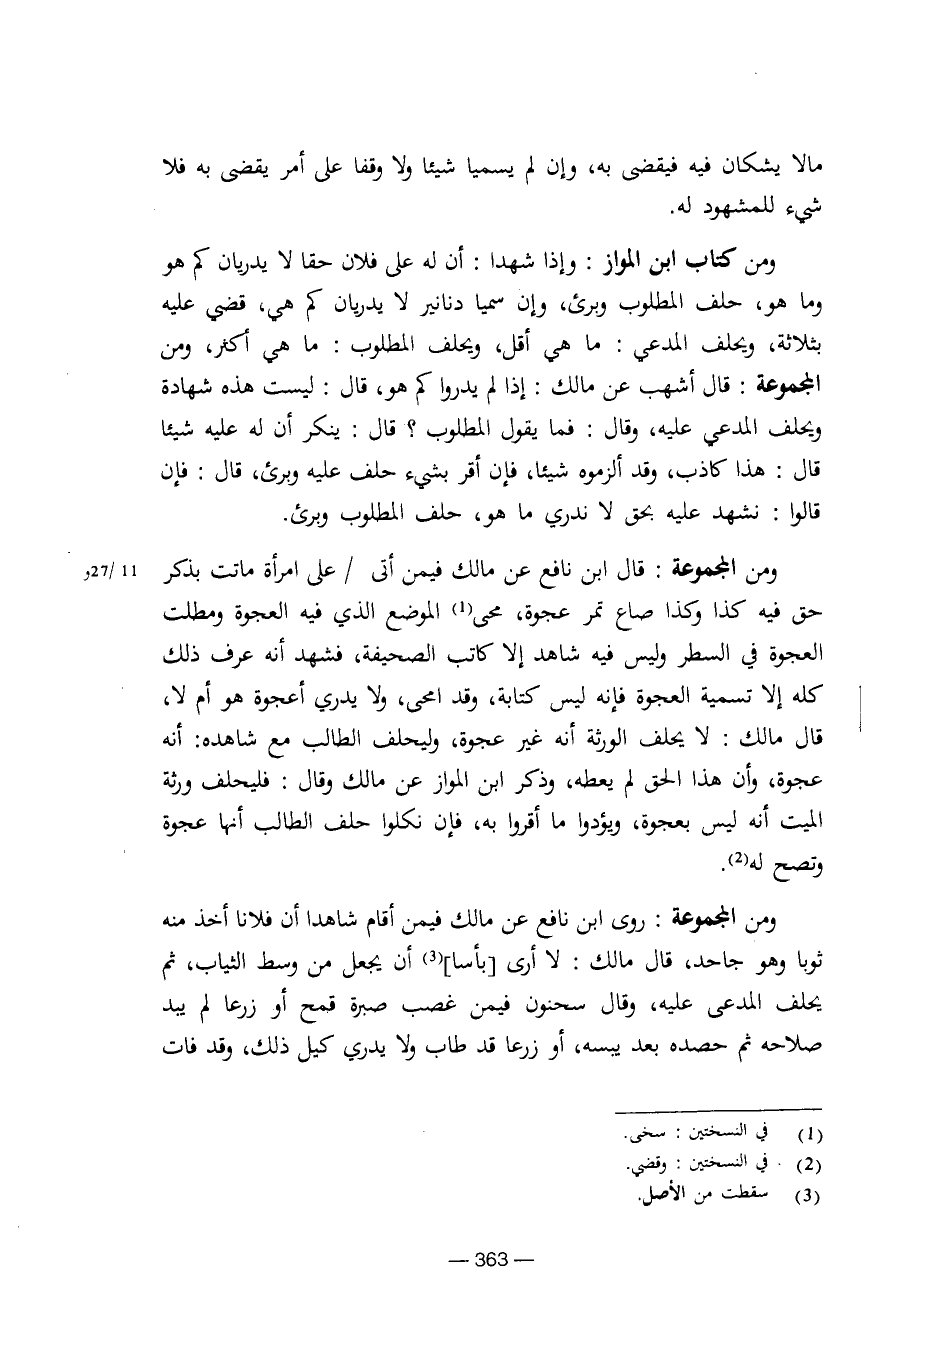 مالا يشكان فيه فيقضى به، وإن لم يسميا شيئا ولا وقفا على أمر يقضى به فلا
شيء للمشهود له.
ومن كتاب ابن المواز : وإذا شهدا : أن له على فلان حقا لا يدريان كم هو
وما هو، حلف المطلوب وبرئ، وإن سميا دنانير لا يدريان كم هي، قضي عليه
بثلاثة، ويحلف المدعي : ما هي أقل، ويحلف المطلوب : ما هي أكثر، ومن
المجموعة : قال أشهب عن مالك : إذا لم يدروا كم هو، قال : ليست هذه شهادة
ويحلف المدعي عليه، وقال : فما يقول المطلوب ؟ قال : ينكر أن له عليه شيئا
قال : هذا كاذب، وقد ألزموه شيئا، فإن أقر بشيء حلف عليه وبرئ، قال : فإن
قالوا : نشهد عليه بحق لا ندري ما هو، حلف المطلوب وبرئ.
ومن المجموعة : قال ابن نافع عن مالك فيمن أتى / على امرأة ماتت بذكر 11 /27و
حق فيه كذا وكذا صاع تمر عجوة، محى(1) الموضع الذي فيه العجوة ومطلت
العجوة في السطر وليس فيه شاهد إلا كاتب الصحيفة، فشهد أنه عرف ذلك
كله إلا تسمية العجوة فإنه ليس كتابة، وقد امحى، ولا يدري أعجوة هو أم لا،
قال مالك : لا يحلف الورثة أنه غير عجوة، وليحلف الطالب مع شاهده: أنه
عجوة، وأن هذا الحق لم يعطه، وذكر ابن المواز عن مالك وقال : فليحلف ورثة
الميت أنه ليس بعجوة، ويؤدوا ما أقروا به، فإن نكلوا حلف الطالب أنها عجوة
وتصح له(2).
ومن المجموعة : روى ابن نافع عن مالك فيمن أقام شاهدا أن فلانا أخذ منه
ثوبا وهو جاحد، قال مالك : لا أرى [بأسا](3) أن يجعل من وسط الثياب، ثم
يحلف المدعى عليه، وقال سحنون فيمن غصب صبرة قمح أو زرعا لم يبد
صلاحه ثم حصده بعد يبسه، أو زرعا قد طاب ولا يدري كيل ذلك، وقد فات
(1) في النسختين : سخى.
(2) في النسختين : وقضي.
(3) سقطت من الأصل.
— 363 —